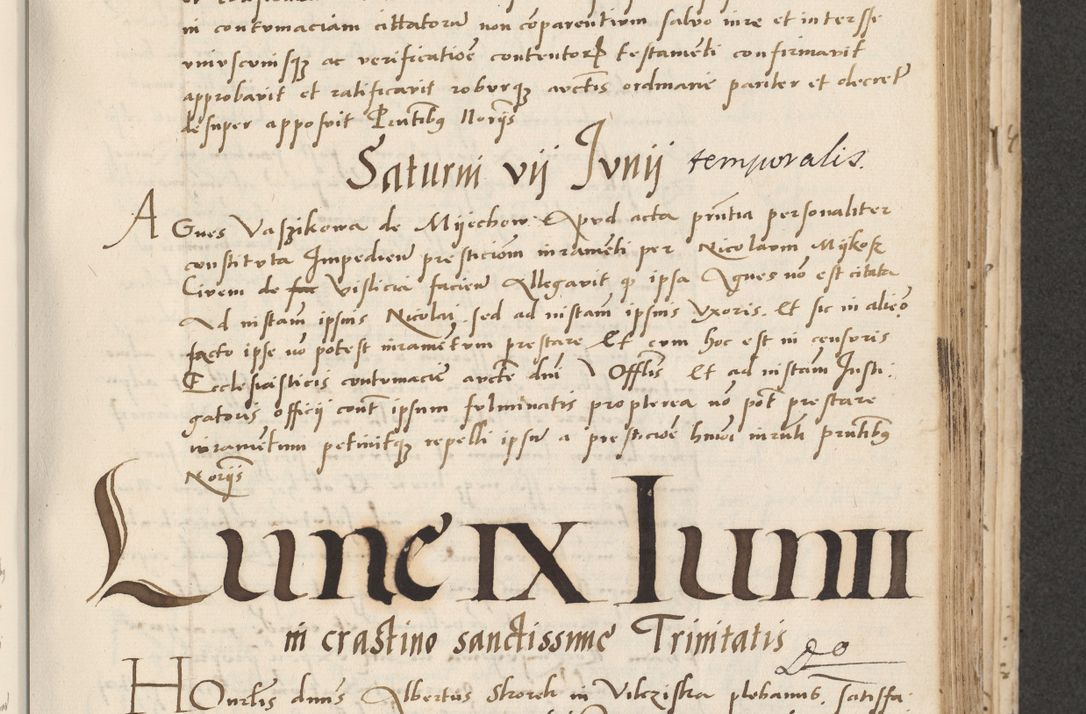 in contumaciam citatorum non comparentium salvo iure et interesse
uniuscuiusque ac verificatione contentorum testamenti confirmavit
approbavit et ratificavit roburque auctis ordinarie pariter et decret
desuper apposuit Pntibus Noriis
Saturni vij Junij temporalis.
Agnes Vaszikowa de Mijechow Apud acta pntia personaliter
constituta Impediens prestitiom iuramenti per Nicolaum Mijkosz
Civem de Vislicia faciens Allegavit q ipsa Agnes no est citata
Ad instam ipsius Nicolai sed ad instam ipsius Uxoris. Et sic in alieo
facto ipse no potest iuramentum prestare Et cum hoc est in censuris
Ecclesiasticis contumacie aucte dni Offlis Et ad instam Insti-
gatoris officij cont ipsum fulminatis propterea no pot prestare
iuramentum petiuitque repelli ipsum a prestitioe hmoi iurnti pntibus
Noriis
Lune IX Iunii
in crastino sanctissime Trinitatis
Honrlis dnus Albertus Skorek in Vilcziska plebanus, satisfa-